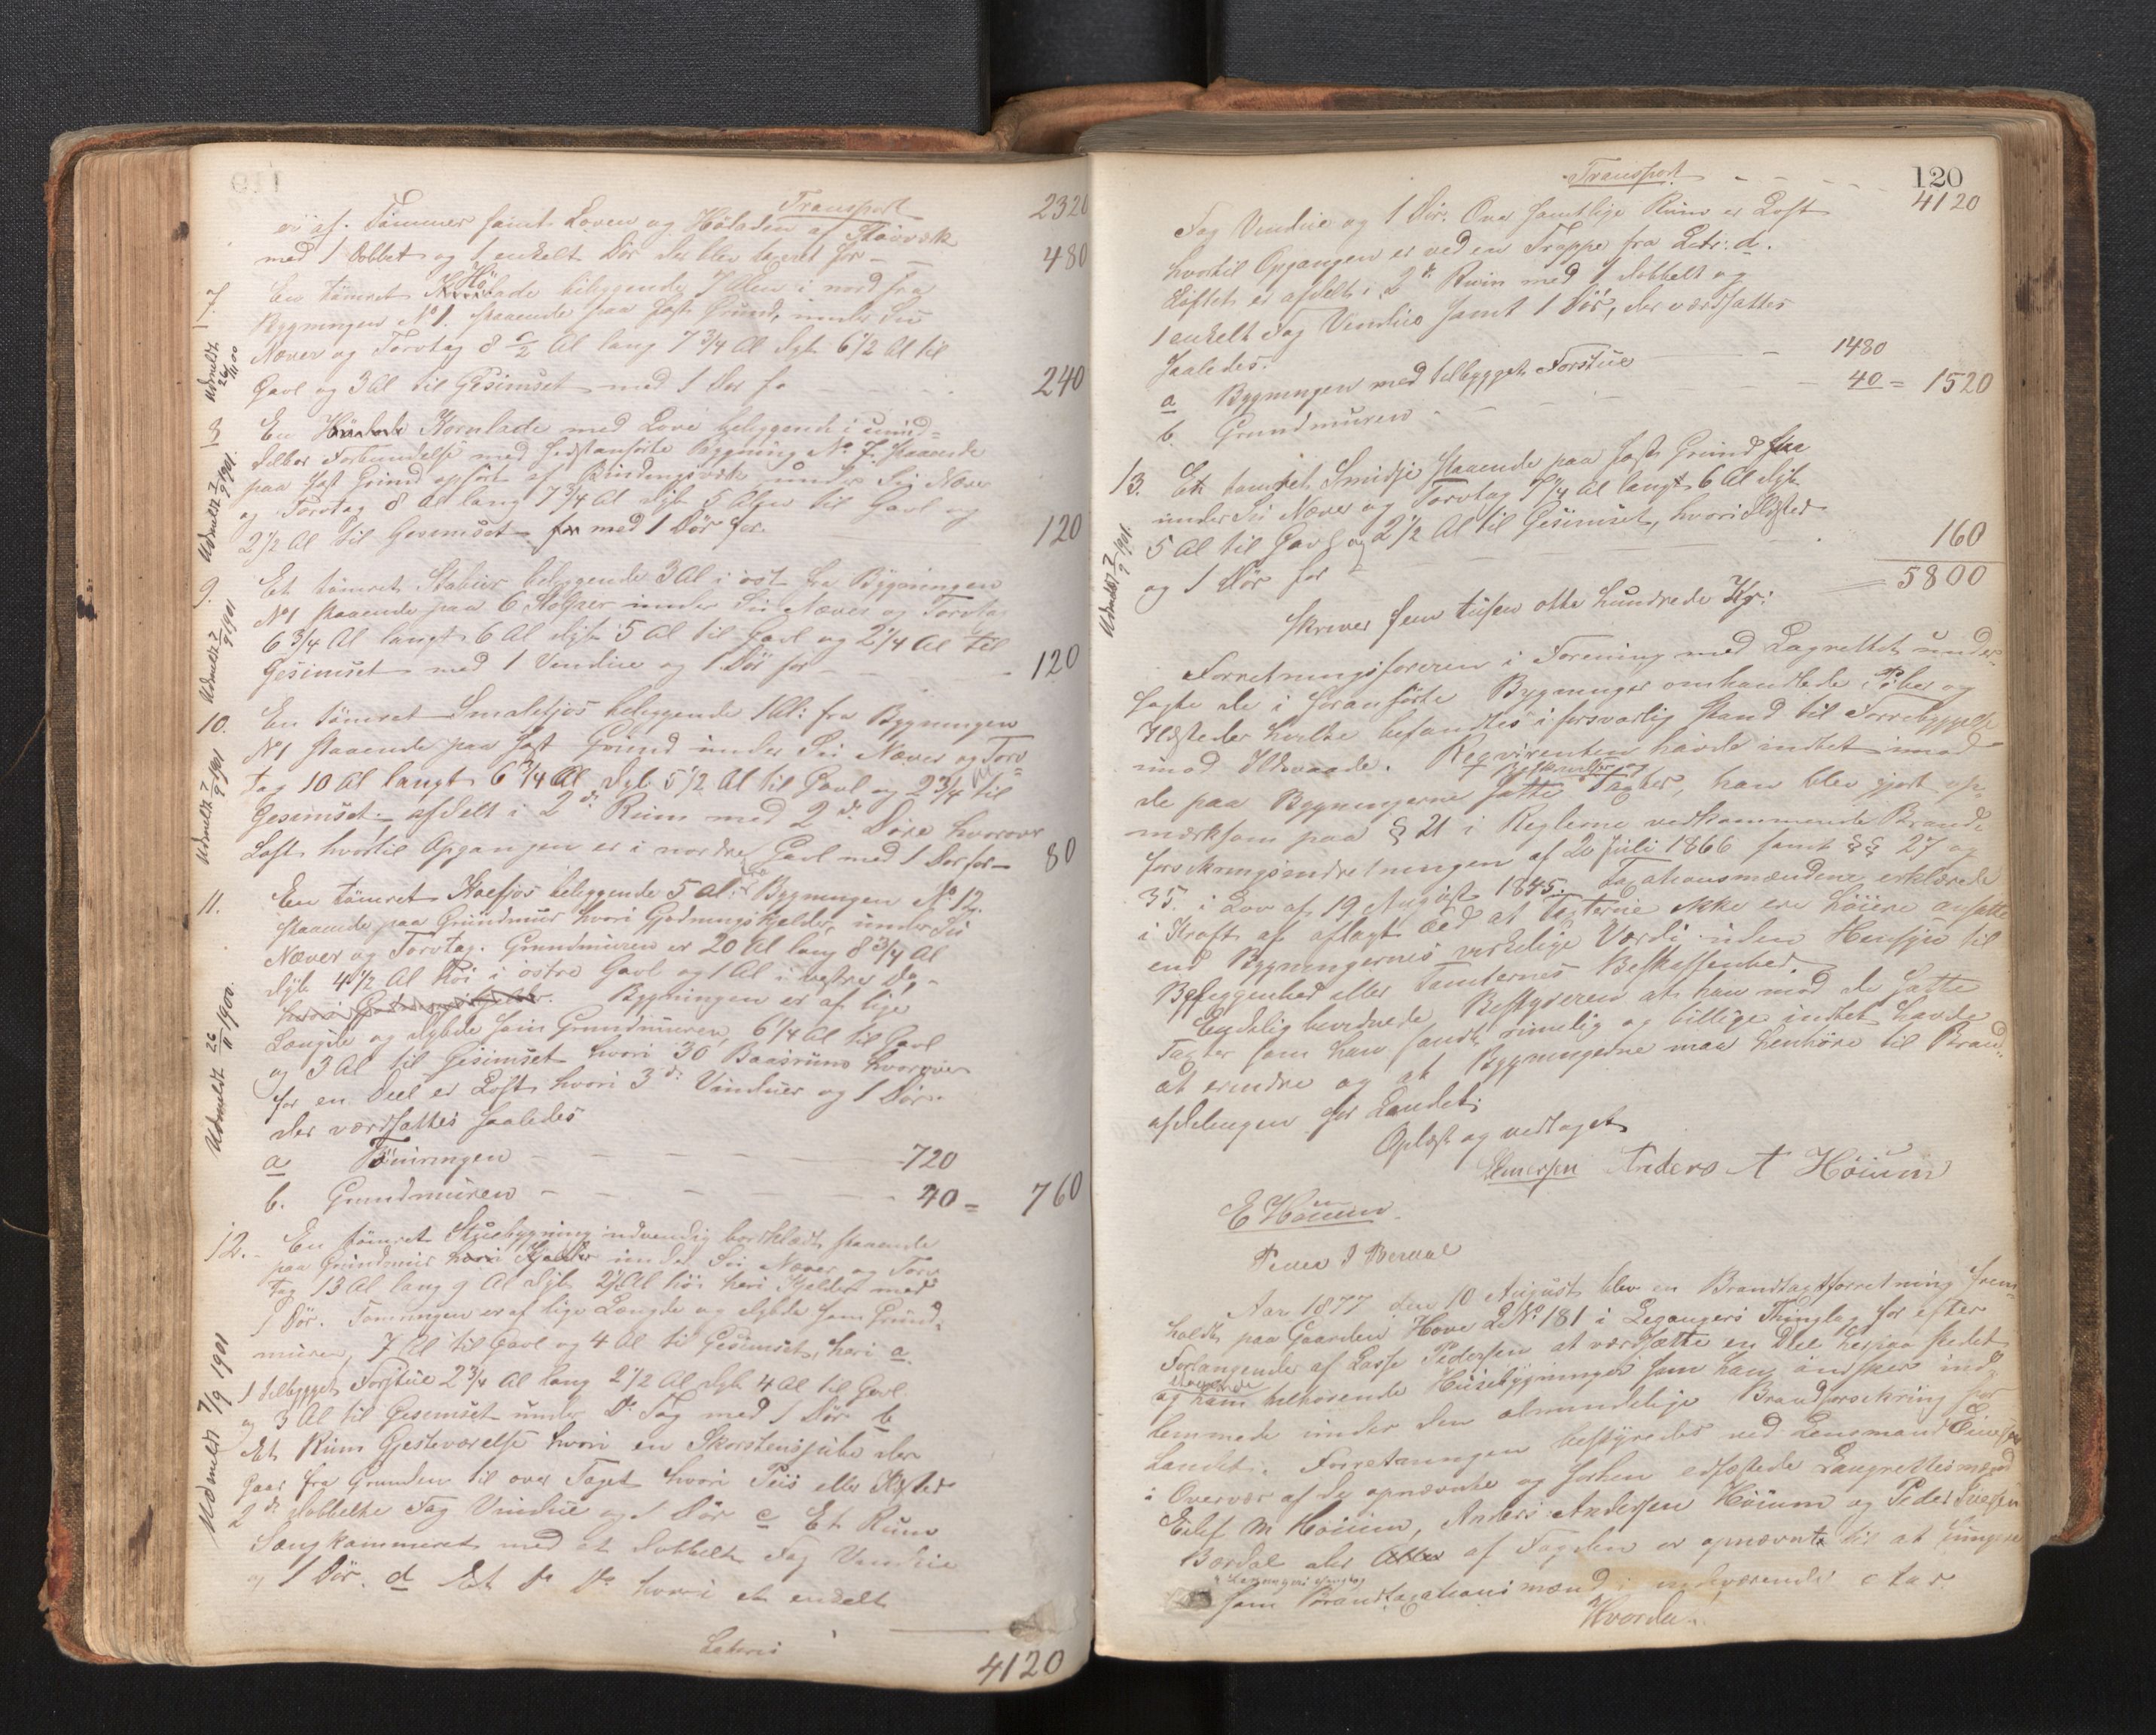 Transport 2320
er af Tømmer samt Loven og Høladen af Stavværk
med 1 dobbelt og 1 enkelt Dör der blev taxeret for - - 480
7. En tömret Hölade beliggende 7 Alen i nord fra
Bygningen No 1. staaende paa fast Grund, under Su
Næver og Torvtag 8 1/2 Al lang 7 3/4 Al dyb 6 1/2 Al til
Gavl og 3 Al til Gesimset med 1 Dör for 240
Udmeldt 26/11 00
8. En Kornlade med Love beliggende i umid=
delbar Forbindelse med sidstanførte Bygning No 7. staaende
paa fast Grund opfört af Bindingsværk under Su Næver
og Torvtag 8 Al lang 7 3/4 Al dyb 5 Alen til Gavl og
2 1/2 Al til Gesimset med 1 Dör for. 120
Udmeldt 7/9 1901.
9. Et tömret Stabur beliggende 3 Al i öst fra Bygningen
No 1 staaende paa 6 Stolper under Su Næver og Torvtag
6 3/4 Al langt 6 Al dyb 5 Al til Gavl og 2 1/4 Al til
Gesimset med 1 Vindue og 1 Dör for - - 120
Udmeldt 7/9 1901
10. En tömret Smalefjös beliggende 1 Al: fra Bygningen
No 1 staaende paa fast Grund under Su Næver og Torv=
tag 10 Al langt 6 3/4 Al dyb 5 1/2 Al til Gavl og 2 3/4 Al til
Gesimset - afdelt i 2de Rum med 2de Döre hvorover
Loft hvortil Opgangen er i nordre Gavl med 1 Dör for - 80
Udmeldt 7/9 1901
11. En tömret Kofjös beliggende 5 Al: fra Bygningen No 12.
staaende paa Grundmur hvori Gjødningskjelder, under Su
Næver og Torvtag. Grundmuren er 20 Al lang 8 3/4 Al
dyb 4 1/2 Al höi i östre Gavl og 1 Al i vestre do -
Bygningen er af lige
Længde og dybde som Grundmuren, 6 1/4 Al til Gavl
og 3 Al til Gesimset hvori 30 Baasrum hvorover
for en Deel er Loft hvori 3de Vinduer og 1 Dör.
der værdsattes saaledes
a Tömringen - - - - 720
b. Grundmuren - - - - 40 = 760
Udmeldt 26/11 1900.
12. - En tömret Stuebygning indvendig bordklædt staaende
paa Grundmur hvori Kjelder under Su Næver og Torv
tag 13 Al lang 9 Al dyb 2 1/2 Al höi hvori Kjelder med
1 Dör. Tömringen er af lige Længde og dybde som Grund=
muren, 7 Al til Gavl og 4 Al til Gesimset, hvori a.
1 tilbygget Forstue 2 3/4 Al lang 2 1/2 Al dyb 4 Al til Gavl
og 3 Al til Gesimset under do Tag med 1 Dör b
Et Rum Gjesteværelse hvori en Skorstenspibe der
gaar fra Grunden til over Taget hvori Peis eller Ildsted
2de dobbelte Fag Vindue og 1 Dör c Et Rum
Sængkammeret med et dobbelt Fag Vindue
og 1 Dör. d Et do do hvori et enkelt
Udmeldt 7/9 1901
Lateris 4120
120
Transport - - - - - 4120
Fag Vindue og 1 Dör. Over samtlige Rum er Loft
hvortil Opgangen er ved en Trappe fra Litr: d.
Loftet er afdelt i 2de Rum med 1 dobbelt og
1 enkelt Fag Vindue samt 1 Dör, der værdsattes
saaledes.
a Bygningen med tilbygget Forstue - - 1480
b. Grundmuren - - - - 40 = 1520
13. En tömret Smidje staaende paa fast Grund
under Su Næver og Torvtag 7 1/4 Al langt 6 Al dyb
5 Al til Gavl og 2 1/2 Al til Gesimset, hvori Ildsted
og 1 Dör for - - - - 160
Udmeldt 7/9 1901.
5800
skriver fem tusen otte hundrede Kr:
Forretningsföreren i Forening med Lagrettet under=
sögte de i foranförte Bygninger omhandlede Piber og
Ildsteder hvilke befandtes i forsvarlig Stand til Forrebyggelse
mod Ildsvaade. Reqvirenten havde intet imod
de paa Bygningerne satte Taxter, han blev gjort op=
mærksom paa § 21 i Reglerne vedkommende Brand=
forsikringsindretningen af 20 Juli 1866 samt §§ 27 og
35 i Lov af 19 August 1845. Taxationsmændene erklærede
i Kraft af aflagt Eed at Taxterne ikke ere höiere ansatte
end Bygningernes virkelige Værdi uden Hensyn til
Beliggenhed eller Tomternes Beskaffenhed.
Endelig bevidnede Bestyreren at han mod de satte
Taxter som han fandt rimelig og billige intet havde
at erindre og at Bygningerne maa henhöre til Brand=
afdelingen for Landet.
Oplæst og vedtaget
Anders A Höium
E Höium
Peder I Berdal
Aar 1877 den 10 August blev en Brandtaxtforretning frem=
holdt paa Gaarden Hove LNo 181 i Leganger Thinglag for efter
Forlangende af Lasse Pedersen at værdsætte en Deel herpaa stedet
staaende
og ham tilhörende Husebygninger som han önsker ind=
lemmede under den almindelige Brandforsikring for
Landet. Forretningen bestyredes ved Lensmand
i Overvær af de opnævnte og forhen edfæstede Laugrettesmænd
Eilef M Höium, Anders Andersen Höium og Peder Iversen
Berdal der af Fogden er opnævnt til at fungere
som Brandtaxationsmænd i indeværende Aar.
Hvorda..